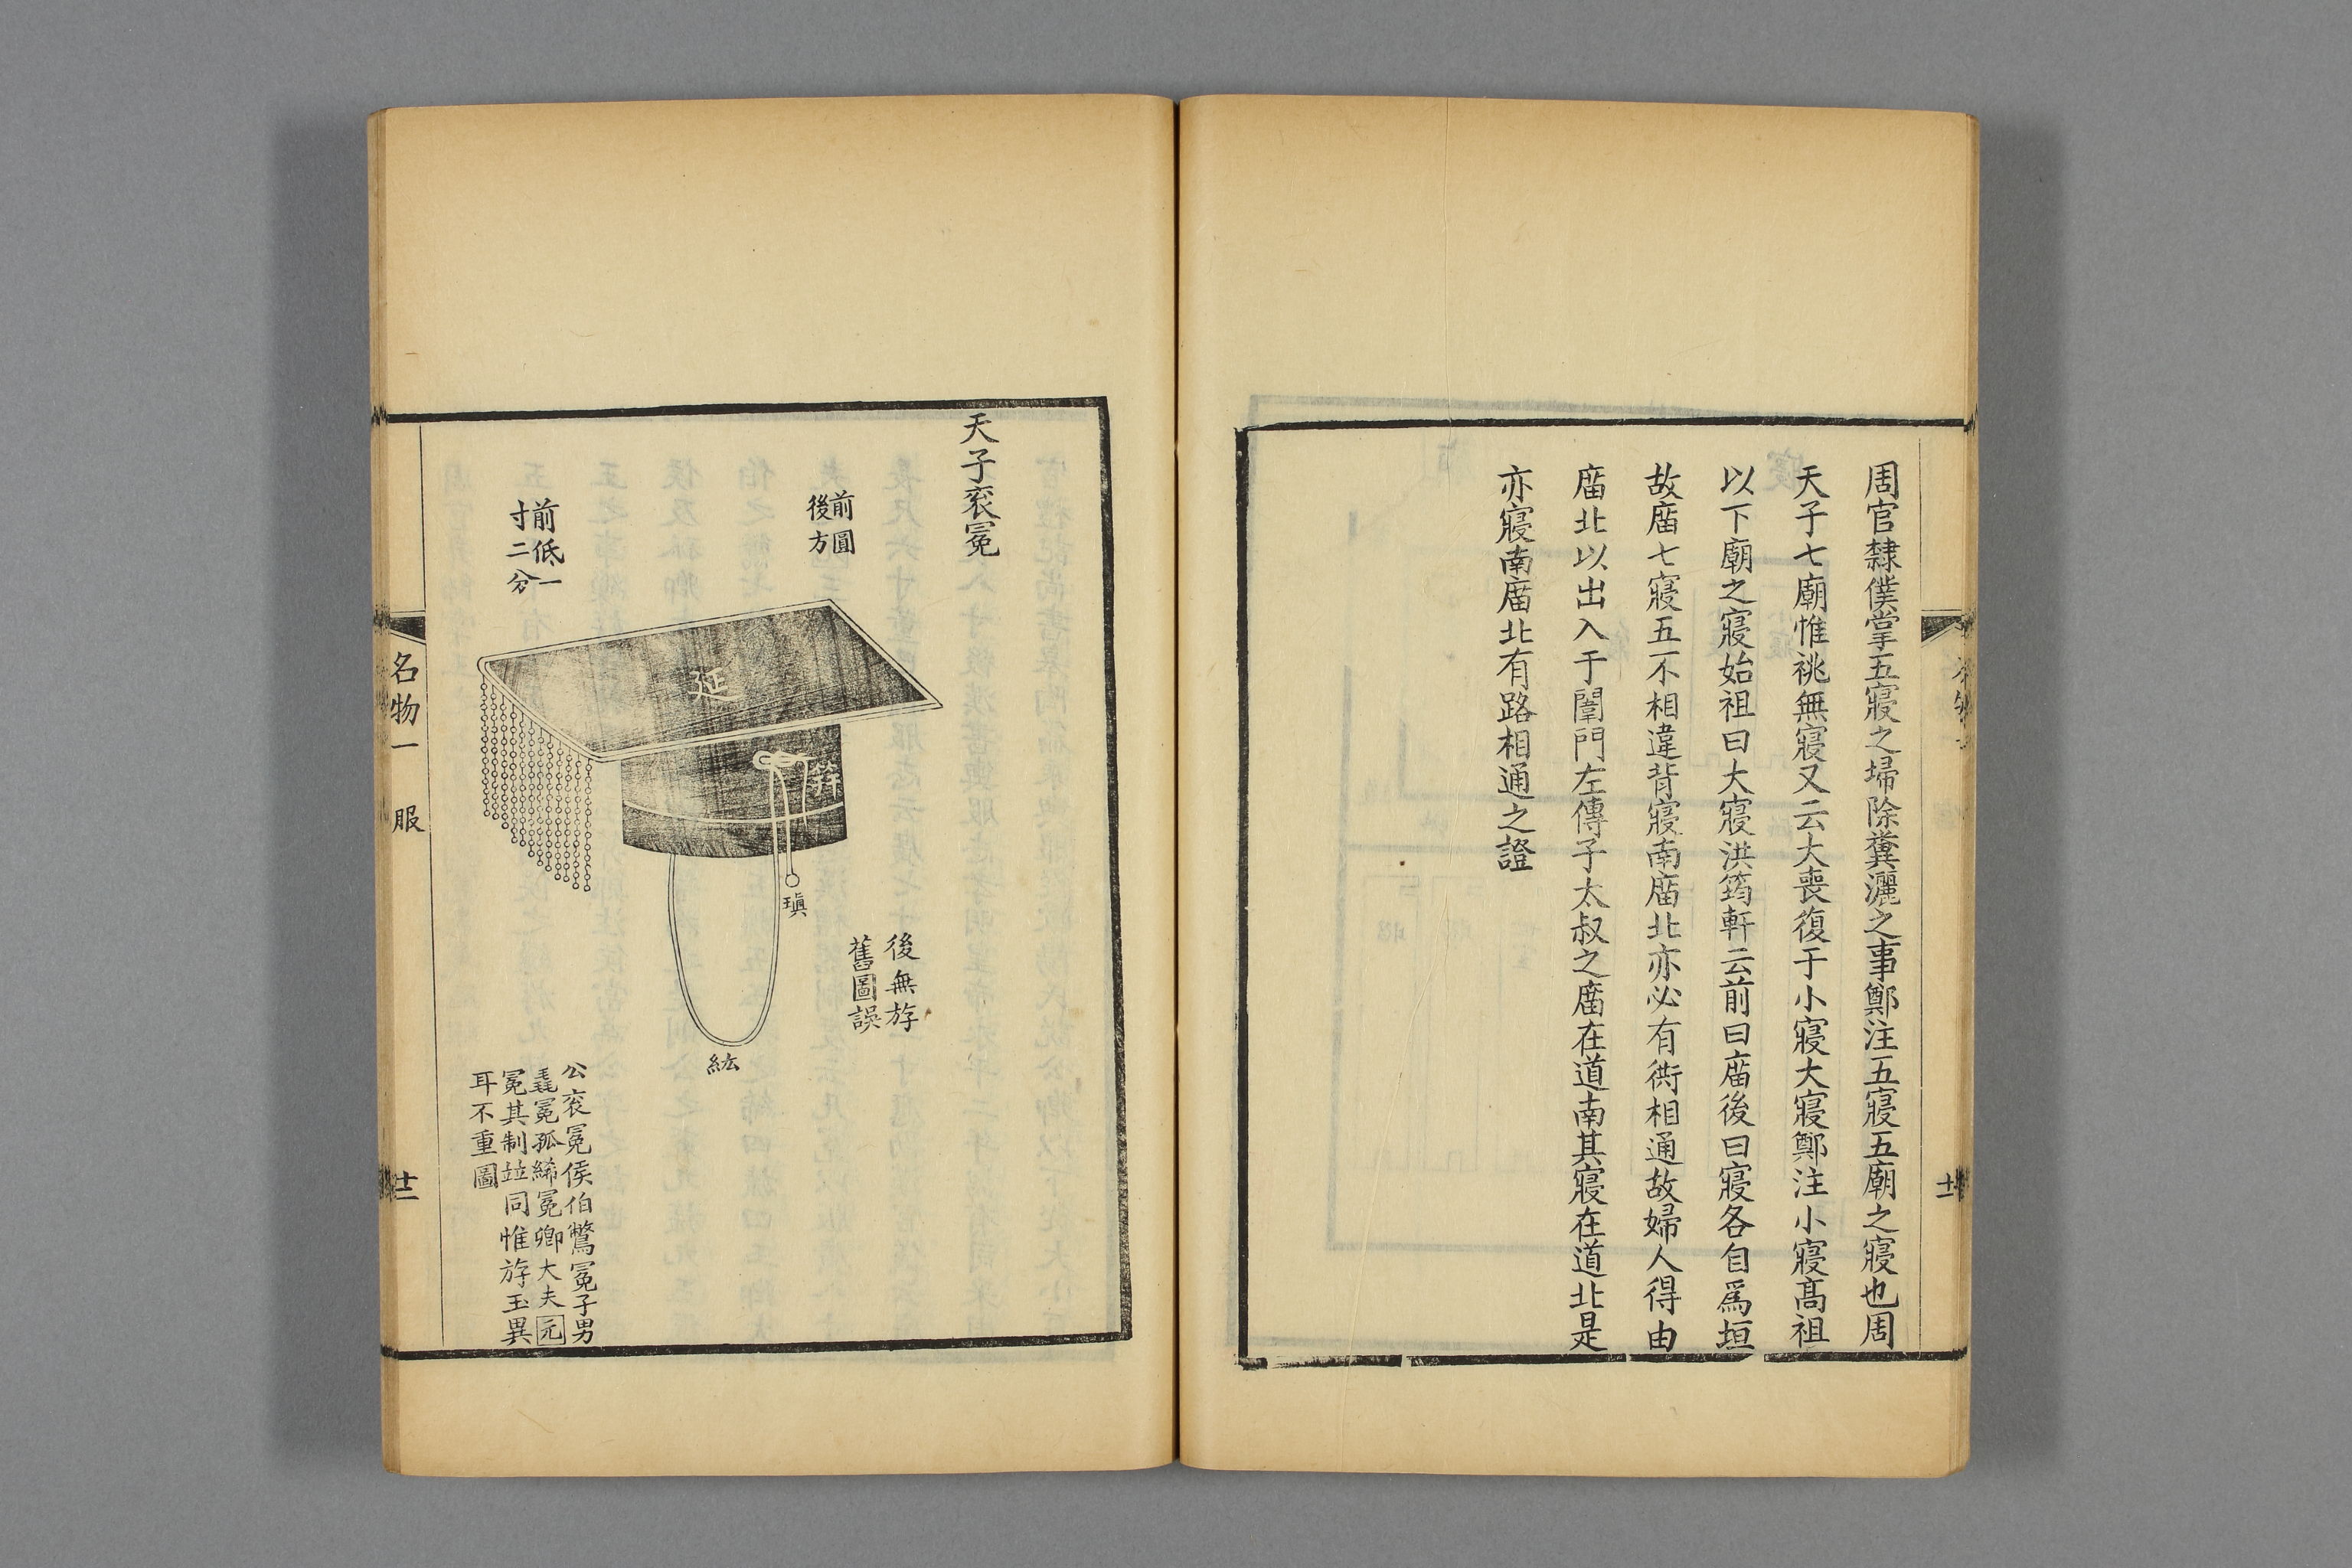 周官隸僕掌五寢之埽除糞灑之事鄭注五寢五廟之寢也周
天子七廟惟祧無寢又云大喪復于小寢大寢鄭注小寢髙祖
以下廟之寢始祖曰大寢洪筠軒云前曰庿後曰寢各自爲垣
故庿七寢五不相違背寢寢南庿北亦必有衖相通故婦人得由
庿北以出入于闈門左傳子太叔之庿在道南其寢在道北是
亦寢南庿北有路相通之證
十二
天子衮冕
前圓
後方
前低一
寸二分
延
笄
瑱
紘
後無斿
舊圖誤
公衮冕侯伯鷩冕子男
毳冕孤絺冕卿大夫元
冕其制竝同惟斿玉異
耳不重圖
名物一 服
十三